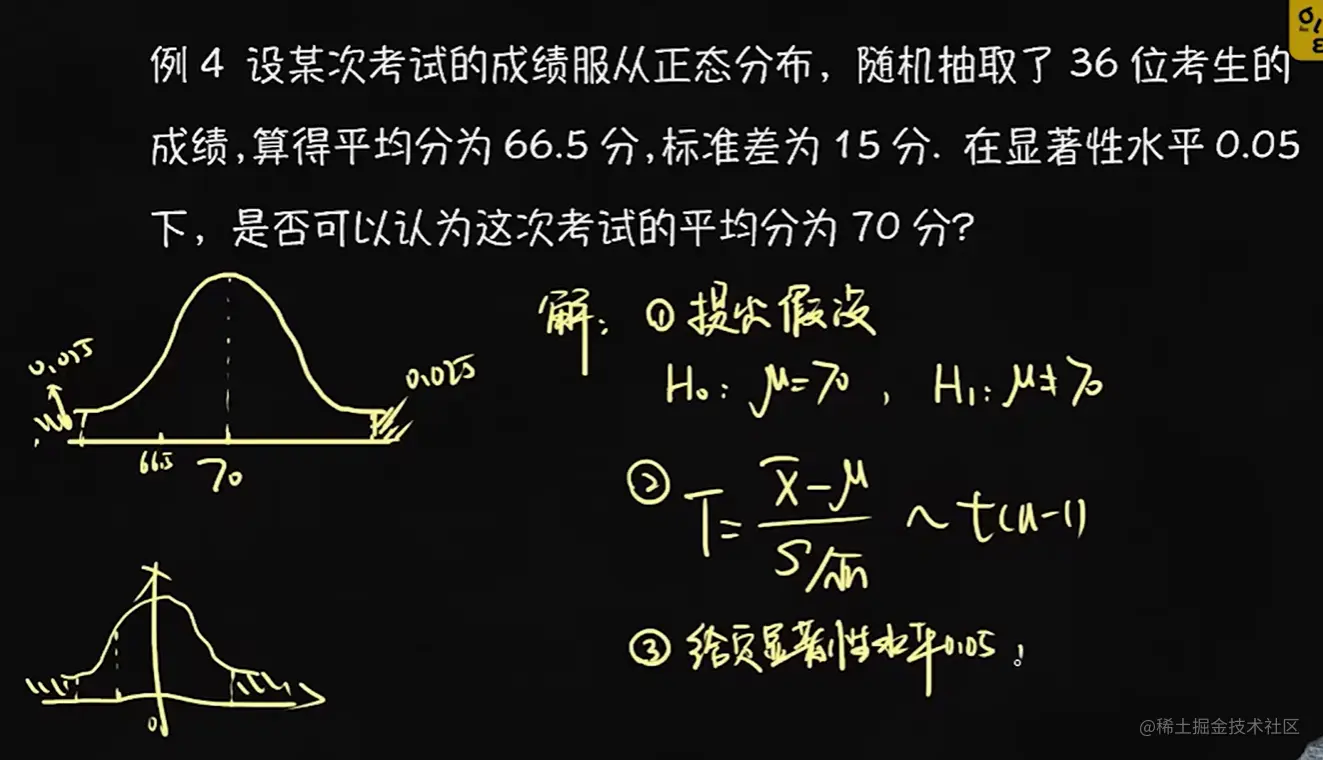 例4 设某次考试的成绩服从正态分布，随机抽取了36位考生的
成绩,算得平均分为66.5分,标准差为15分. 在显著性水平0.05
下，是否可以认为这次考试的平均分为70分?
解: ①提出假设
H₀: μ=70, H₁: μ≠70
0.025
0.025
66.5
70
② T= (x̄-μ)/(S/√n) ~ t(n-1)
③ 给定显著性水平0.05
0
@稀土掘金技术社区